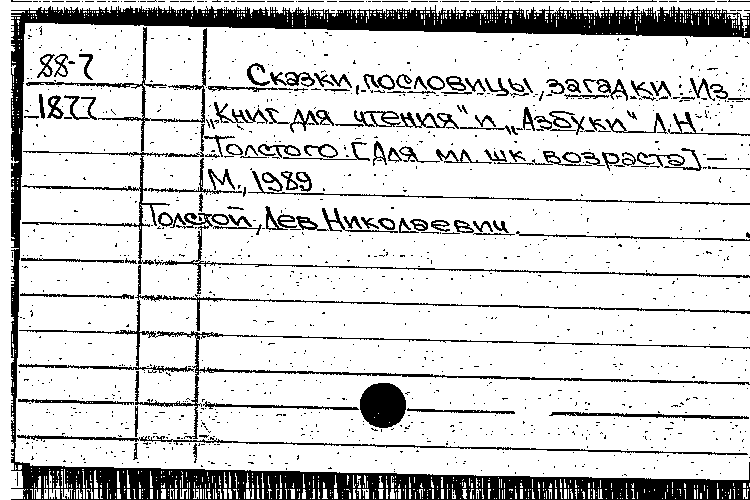 88-7 Сказки, пословицы, загадки: Из
1877 „Книг для чтения“ и „Азбуки“ Л.Н.
Толстого: [Для мл. шк. возраста] –
М., 1989
Толстой, Лев Николаевич.